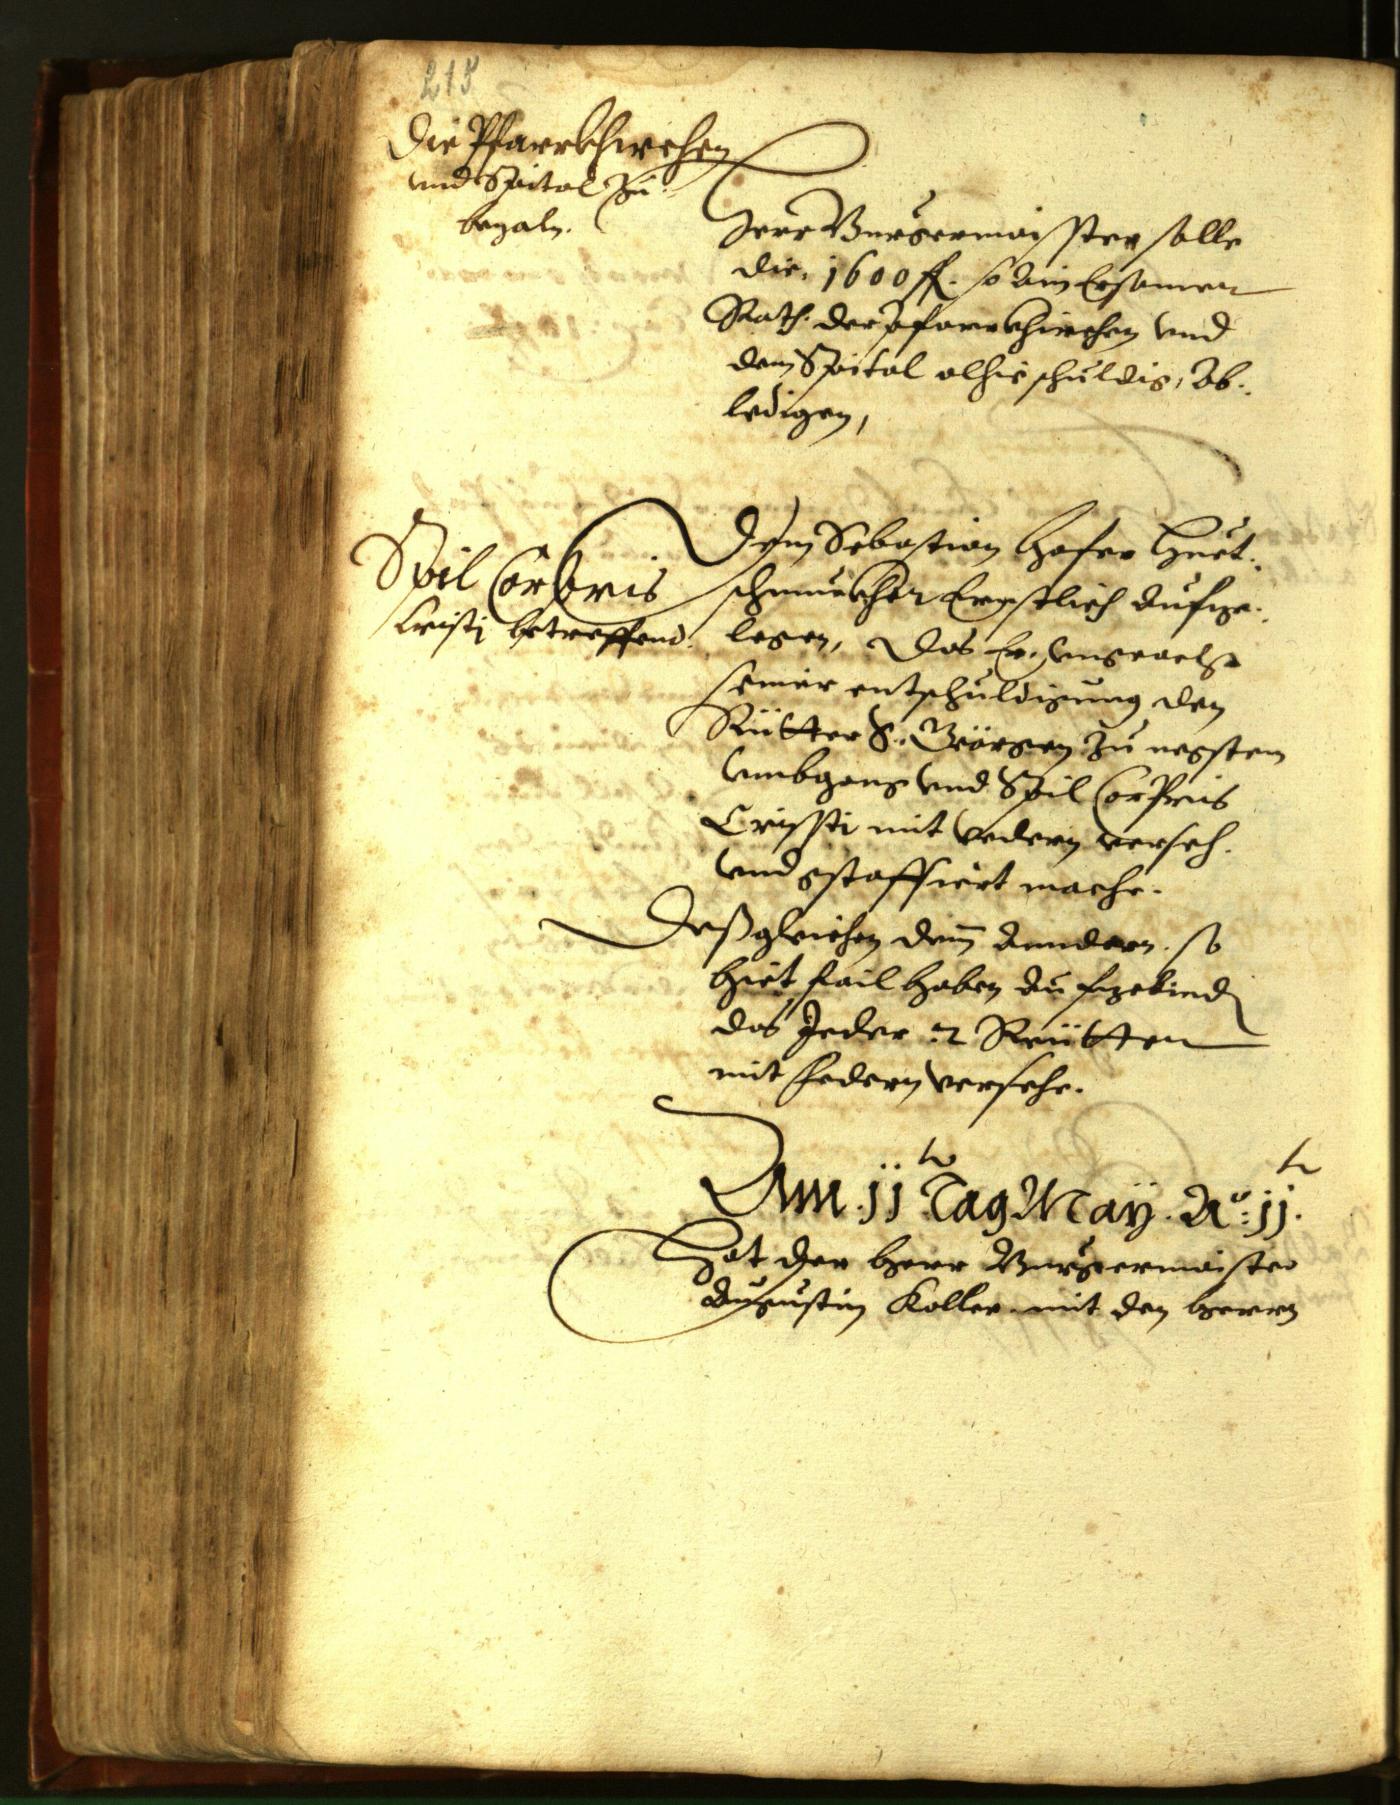 213
Die Pfarrkhirchen
und Spital Zu
bezaln.
Herr Burgermaisster solle
die. 1600 fl. so ain Ersamen
Rath. der Pfarrkhirchen und
dem Spital alhie schuldig, Ab¬
ledigen,
Spil Corporis
Cristi betreffend.
Dem Sebastian Hofer Huet¬
schmukher Ernstlich aufge¬
legen, Das Er, ungeacht
seiner entschuldigung den
Ritter S. Georgen Zu negstem
umbgang und Spil Corporis
Cristi mit vedern verseh.
und gstaffiert mache.
Deßgleichen den andern. so
hiet fail haben aufgebind
das Jeder 2 Ritter
mit federn versehe.
Am .jj ten Tag May. Ao: jj. ten
Hat der herr Burgermaister
Augustin Koller. mit den herrn